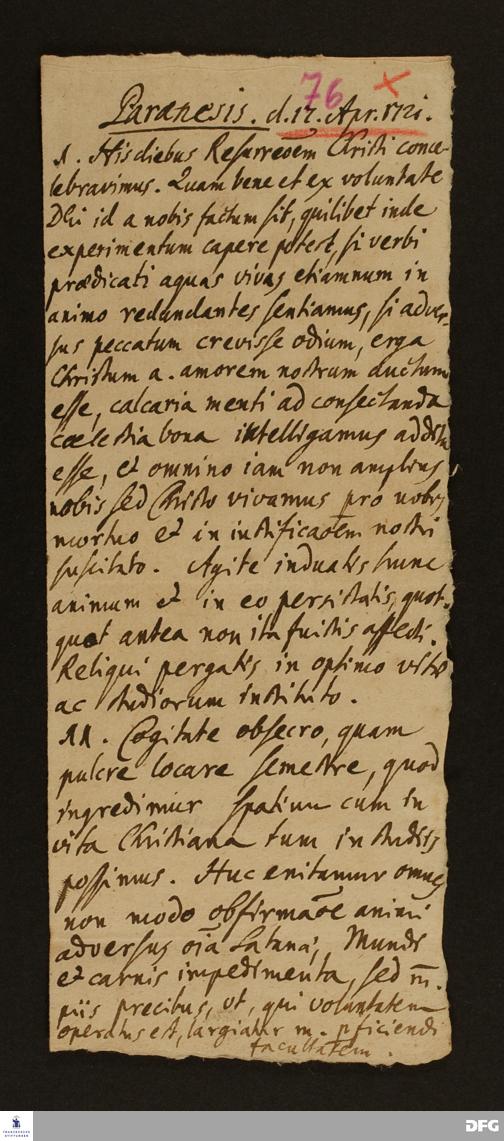 76 x
Parænesis. d. 17. Apr. 1721.
1. His diebus Resurreōem Christi conce-
lebravimus. Quam bene et ex voluntate
Dei id a nobis factum sit, quilibet inde
experimentum capere potest, si verbi
prædicati aquas vivas etiamnum in
animo redundantes sentiamus, si adver-
sus peccatum crevisse odium, erga
Christum a. amorem nostrum auctum
esse, calcaria menti ad consectanda
cœlestia bona intelligamus addita
esse, et omnino iam non amplius
nobis sed Christo vivamus pro nobis
mortuo et in iustificaōem nostri
suscitato. Agite induatis hunc
animum et in eo persistatis, quot-
quot antea non ita fuistis affecti.
Reliqui pergatis in optimo vitæ
ac studiorum instituto.
11. Cogitate obsecro, quam
pulcre locare semestre, quod
ingredimur spatium cum in
vita Christiana tum in studiis
possimus. Huc enitamur omnes
non modo obfirmaōe animi
adversus oīa Satanæ, Mundi
et carnis impedimenta, sed m̄.
piis precibus, ut, qui voluntatem
operatus est, largiatur m. pficiendi
facultatem.
FRANCKESCHE
STIFTUNGEN
DFG